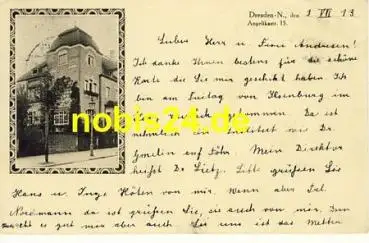 Dresden-N., den 1 VII 13
Angelikastr. 15.
Lieber Herr u. Frau Andresen!
Ich danke Ihnen bestens für die schöne
Karte die Sie mir geschickt haben Ich
bin am Freitag von Ilsenburg im
kommen. Da ist
nobis24.de
ein Institut wo Dr.
Gmelin auf Föhr. Mein Direktor
heißt Dr Lietz. Bitte grüßen Sie
Hans u. Inge von mir. Wenn aber Frl.
Nordmann da ist grüßen Sie, sie auch von mir. Den
es gut mir aber auch. Bei uns ist das Wetter